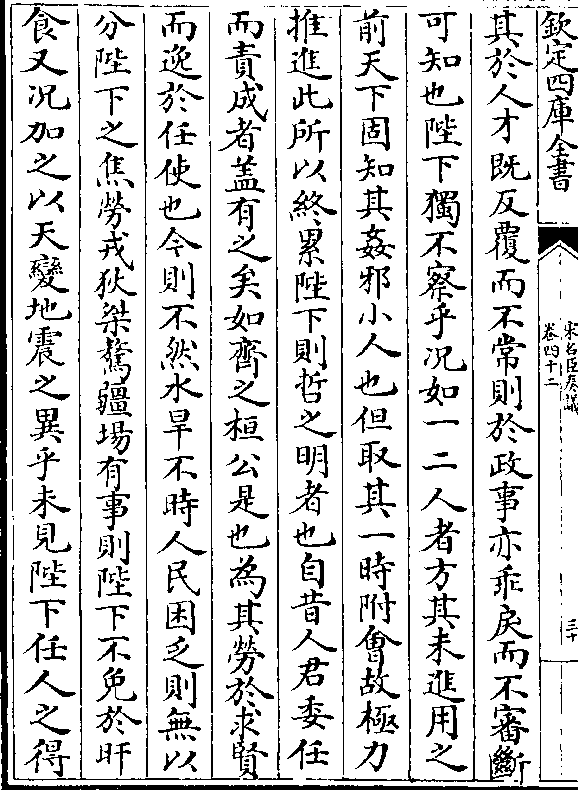 欽定四庫全書
宋名臣奏議
卷四十二
三十
其於人才既反覆而不常則於政事亦乖戾而不審斷
可知也陛下獨不察乎况如一二人者方其未進用之
前天下固知其姦邪小人也但取其一時附㑹故極力
推進此所以終累陛下則哲之明者也自昔人君委任
而責成者蓋有之矣如齊之桓公是也為其勞於求賢
而逸於任使也今則不然水旱不時人民困乏則無以
分陛下之焦勞戎狄桀驁疆場有事則陛下不免於旰
食又况加之以天變地震之異乎未見陛下任人之得